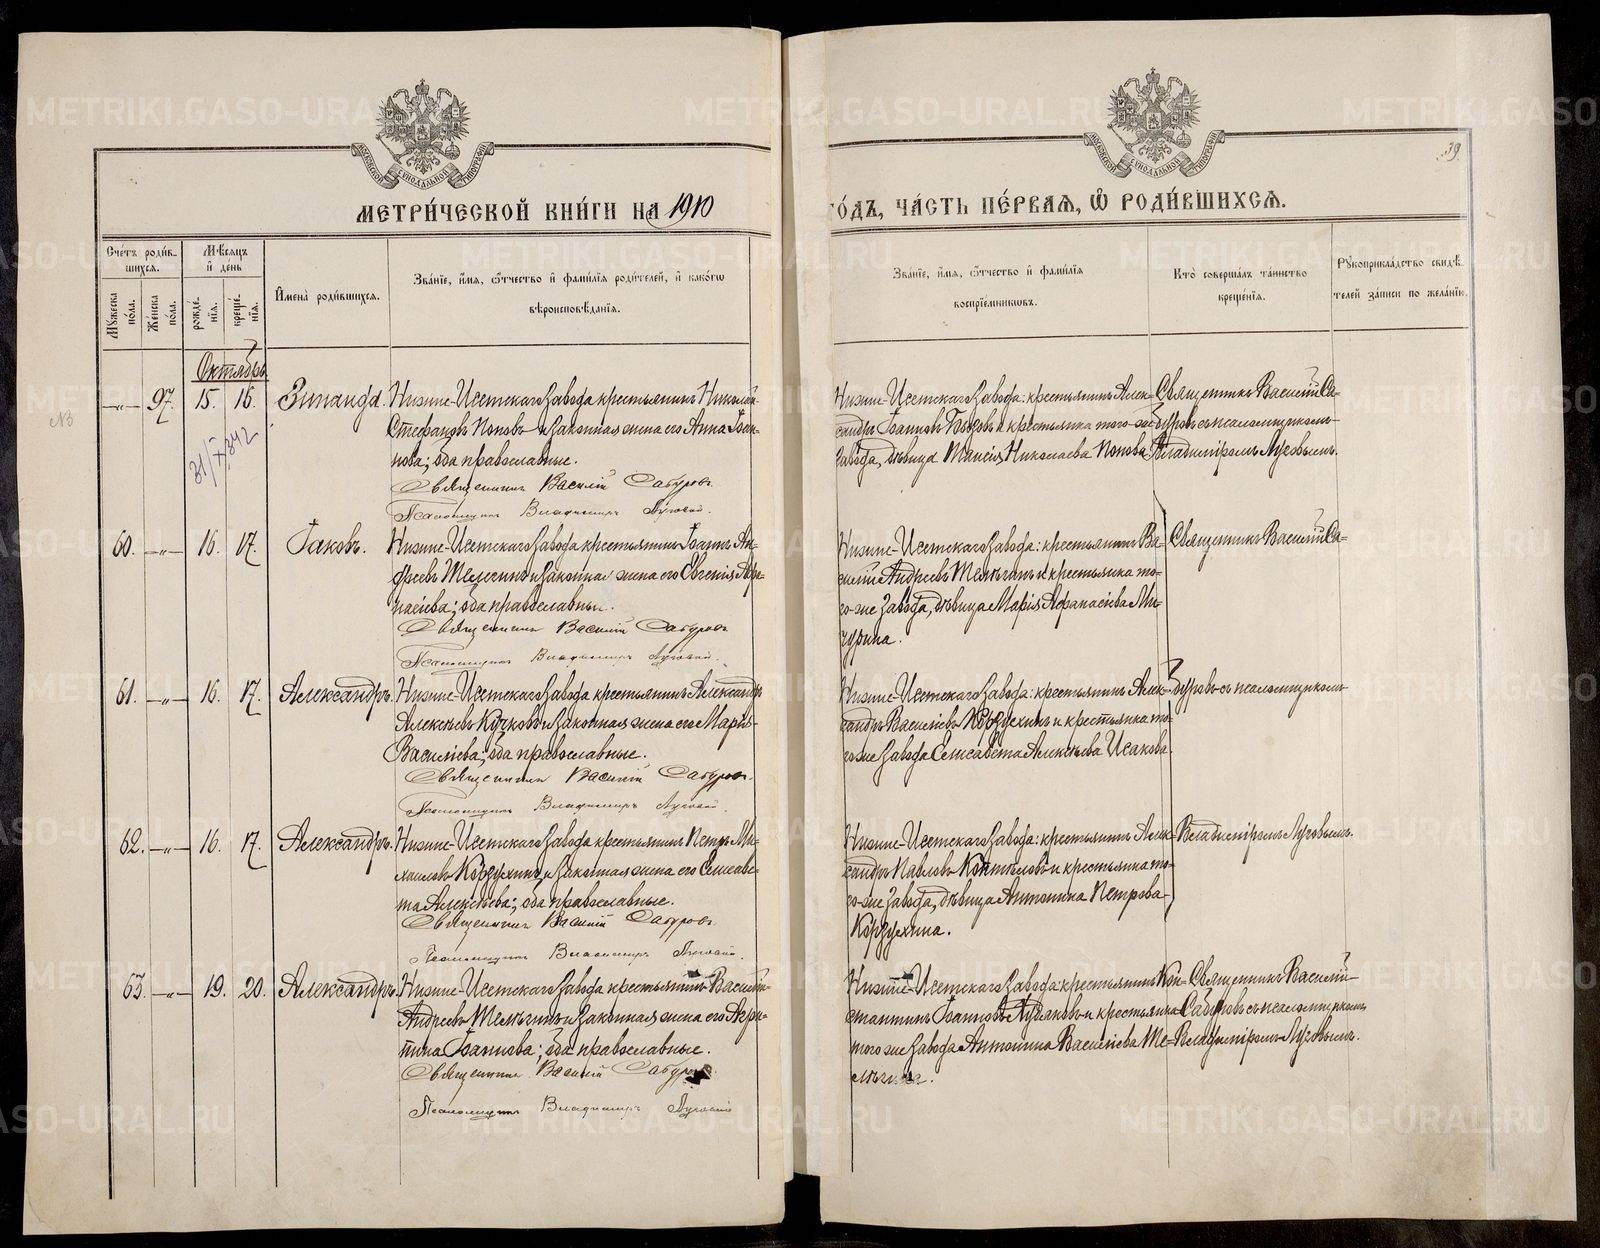 METRIKI.GASO-URAL.RU
МЕТРИ́ЧЕСКОЙ КНИ́ГИ НА 1910
ГО́ДЪ, ЧА́СТЬ ПЕ́РВАЯ, Ѡ҆ РОДИ́ВШИХСЯ.
39.
Сче́тъ роди́в-
шихся.
Мѣ́сяцъ
и҆ де́нь
Му́жеска по́ла.
Же́нска по́ла.
рожде́-
нїя.
креще́-
нїя.
И҆мена̀ роди́вшихся.
Зва́нїе, и҆́мя, ѻ҆́тчество и҆ фами́лїя роди́телей, и҆ како́гѡ
вѣроисповѣ́данїя.
Зва́нїе, и҆́мя, ѻ҆́тчество и҆ фами́лїя
воспрїе́мникѡвъ.
Кто̀ соверша́лъ та́инство
креще́нїя.
Рꙋкоприкла́дство свидѣ́-
телей за́писи по жела́нїю.
Октябрь
—„— 97. 15. 16. Зинаида.
31/X 342
Нижне-Исетскаго завода крестьянинъ Николай
Стефановъ Поповъ и законная жена его Анна Іоан-
нова; оба православные.
Священникъ Василій Сабуровъ
Псаломщикъ Владимиръ Луговой.
Нижне-Исетскаго завода: крестьянинъ Алек-
сандръ Іоанновъ и крестьянка того-же
завода, дѣвица Таисія Николаева Попова.
Священникъ Василій Са-
буровъ съ псаломщикомъ
Владиміромъ Луговымъ.
60. —„— 16. 17. Іаковъ.
Нижне-Исетскаго завода крестьянинъ Іоаннъ Ан-
дреевъ Телегинъ и законная жена его Евгенія Афа-
насіева; оба православны.
Священникъ Василій Сабуровъ
Псаломщикъ Владимиръ Луговой.
Нижне-Исетскаго завода: крестьянинъ Ва-
силій Андреевъ Телѣгинъ и крестьянка то-
го-же завода, дѣвица Марія Афанасіева Ми-
чурина.
Священникъ Василій Са-
61. —„— 16. 17. Александръ.
Нижне-Исетскаго завода крестьянинъ Александръ
Алексѣевъ Кучковъ и законная жена его Марія
Василіева; оба православные.
Священникъ Василій Сабуровъ.
Псаломщикъ Владимиръ Луговой.
Нижне-Исетскаго завода: крестьянинъ Алек-
сандръ Василіевъ Кордухинъ и крестьянка то-
го-же завода Елисавета Алексѣева Исакова.
буровъ съ псаломщикомъ
62. —„— 16. 17. Александръ.
Нижне-Исетскаго завода крестьянинъ Петръ Ми-
хаиловъ Кордухинъ и законная жена его Елисаве-
та Алексѣева; оба православные.
Священникъ Василій Сабуровъ
Псаломщикъ Владимиръ Луговой.
Нижне-Исетскаго завода: крестьянинъ Алек-
сандръ Павловъ и крестьянка то-
го-же завода, дѣвица Антонина Петрова
Кордухина.
Владиміромъ Луговымъ.
63. —„— 19. 20. Александръ.
Нижне-Исетскаго завода крестьянинъ Василій
Андреевъ Телѣгинъ и законная жена его Агри-
пина Іоаннова; оба православные.
Священникъ Василій Сабуровъ
Псаломщикъ Владимиръ Луговой
Нижне-Исетскаго завода: крестьянинъ Кон-
стантинъ Іоанновъ и крестьянка
того-же завода Антонина Василіева Те-
лѣгина.
Священникъ Василій
Сабуровъ съ псаломщикомъ
Владиміромъ Луговымъ.